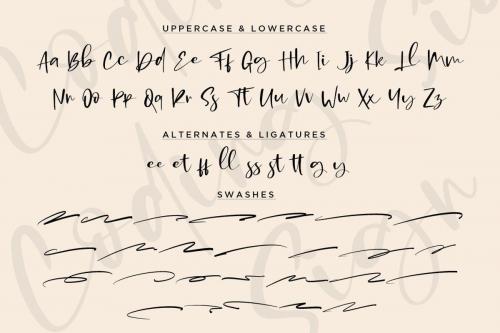 UPPERCASE & LOWERCASE
Aa Bb Cc Dd Ee Ff Gg Hh Ii Jj Kk Ll Mm
Nn Oo Pp Qq Rr Ss Tt Uu Vv Ww Xx Yy Zz
ALTERNATES & LIGATURES
ee et ff ll ss st tt g y
SWASHES
Coding Sign